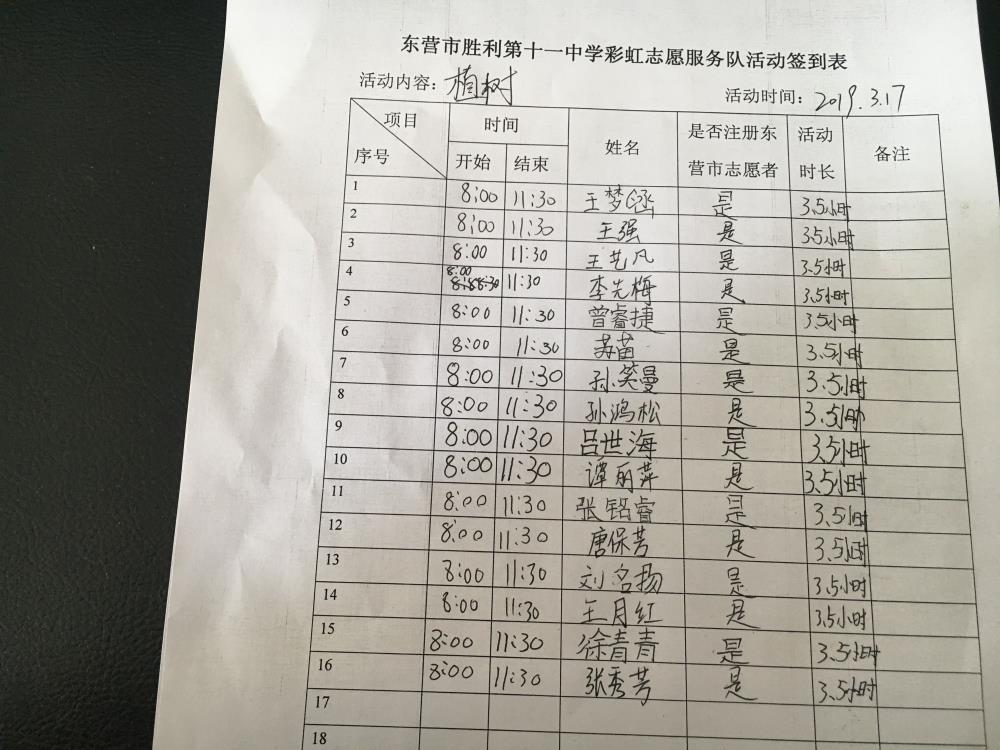 东营市胜利第十一中学彩虹志愿服务队活动签到表
活动内容：植树 活动时间：2019.3.17
项目 序号 时间 开始 结束 姓名 是否注册东营市志愿者 活动时长 备注
1 8:00 11:30 王梦涵 是 3.5小时
2 8:00 11:30 王强 是 3.5小时
3 8:00 11:30 王艺凡 是 3.5小时
4 8:00 11:30 李先梅 是 3.5小时
5 8:00 11:30 曾睿捷 是 3.5小时
6 8:00 11:30 苏苗 是 3.5小时
7 8:00 11:30 孙笑曼 是 3.5小时
8 8:00 11:30 孙鸿松 是 3.5小时
9 8:00 11:30 吕世海 是 3.5小时
10 8:00 11:30 谭丽萍 是 3.5小时
11 8:00 11:30 张铭睿 是 3.5小时
12 8:00 11:30 唐保芳 是 3.5小时
13 8:00 11:30 刘名扬 是 3.5小时
14 8:00 11:30 王月红 是 3.5小时
15 8:00 11:30 徐青青 是 3.5小时
16 8:00 11:30 张秀芳 是 3.5小时
17
18